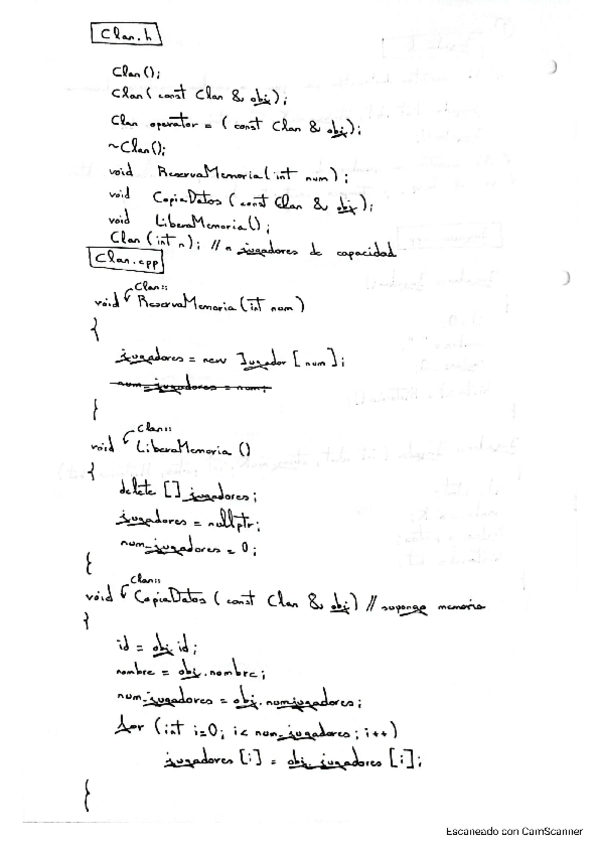 Clan.h
Clan();
Clan( const Clan & obj);
Clan operator = ( const Clan & obj);
~Clan();
void ReservaMemoria( int num);
void CopiaDatos ( const Clan & obj);
void LiberaMemoria();
Clan (int n); // n jugadores de capacidad
Clan.cpp
Clan::
void ReservaMemoria (int num)
{
jugadores = new Jugador [num];
num_jugadores = num;
}
Clan::
void LiberaMemoria ()
{
delete [] jugadores;
jugadores = nullptr;
num_jugadores = 0;
}
Clan::
void CopiaDatos ( const Clan & obj) // supongo memoria
{
id = obj.id;
nombre = obj.nombre;
num_jugadores = obj.numjugadores;
for (int i=0; i< num_jugadores; i++)
jugadores [i] = obj.jugadores [i];
}
Escaneado con CamScanner